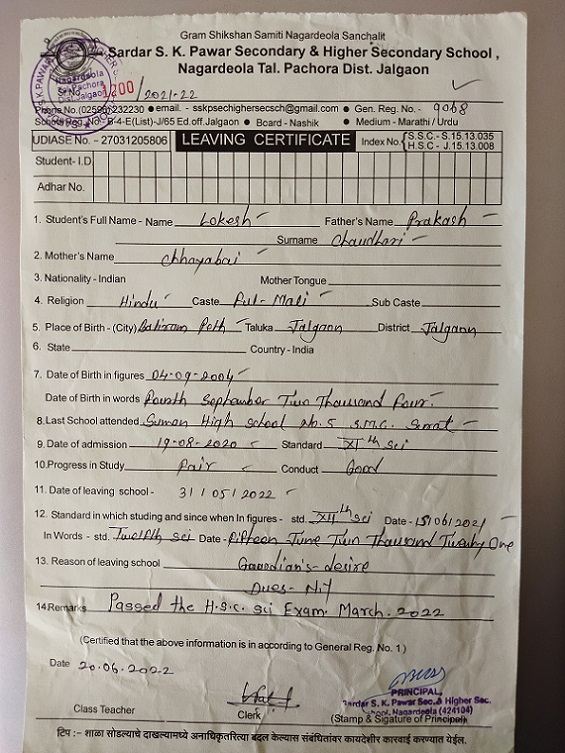 Gram Shikshan Samiti Nagardeola Sanchalit
Sardar S. K. Pawar Secondary & Higher Secondary School ,
Nagardeola Tal. Pachora Dist. Jalgaon
Sr.No. 1200 / 2021-22
Phone No.(02596) 232230 ● email. - sskpsechighersecsch@gmail.com ● Gen. Reg. No.- 9068
School Reg. No.- B-4-E(List-J/65 Ed.off.Jalgaon ● Board - Nashik ● Medium - Marathi / Urdu
UDIASE No. - 27031205806 LEAVING CERTIFICATE Index No. S.S.C.- S.15.13.035
H.S.C - J.15.13.008
Student- I.D.
Adhar No.
1. Student's Full Name - Name Lokesh Father's Name Prakash
Surname Chaudhari
2. Mother's Name Chhayabai
3. Nationality - Indian Mother Tongue
4. Religion Hindu Caste Ful-Mali Sub Caste
5. Place of Birth - (City) Baliram Peth Taluka Jalgaon District Jalgaon
6. State Country - India
7. Date of Birth in figures 04-09-2004
Date of Birth in words Fourth September Two Thousand Four
8. Last School attended Suman High school No. 5 S.M.C. Surat
9. Date of admission 19-08-2020 Standard XIth Sci
10. Progress in Study Fair Conduct Good
11. Date of leaving school - 31/05/2022
12. Standard in which studing and since when In figures - std. XIIth Sci Date - 15/06/2021
In Words - std. Twelfth Sci Date - Fifteen June Two Thousand Twenty One
13. Reason of leaving school Guardian's desire
Dues - Nil
14 Remarks Passed the H.S.C. Sci Exam. March. 2022
(Certified that the above information is in according to General Reg. No. 1 )
Date 20.06.2022
Class Teacher Clerk
PRINCIPAL,
Sardar S. K. Pawar Sec. & Higher Sec.
School, Nagardeola (424104)
(Stamp & Sigature of Principal)
टिप :- शाळा सोडल्याचे दाखल्यामध्ये अनाधिकृतरित्या बदल केल्यास संबंधितांवर कायदेशीर कारवाई करण्यात येईल.